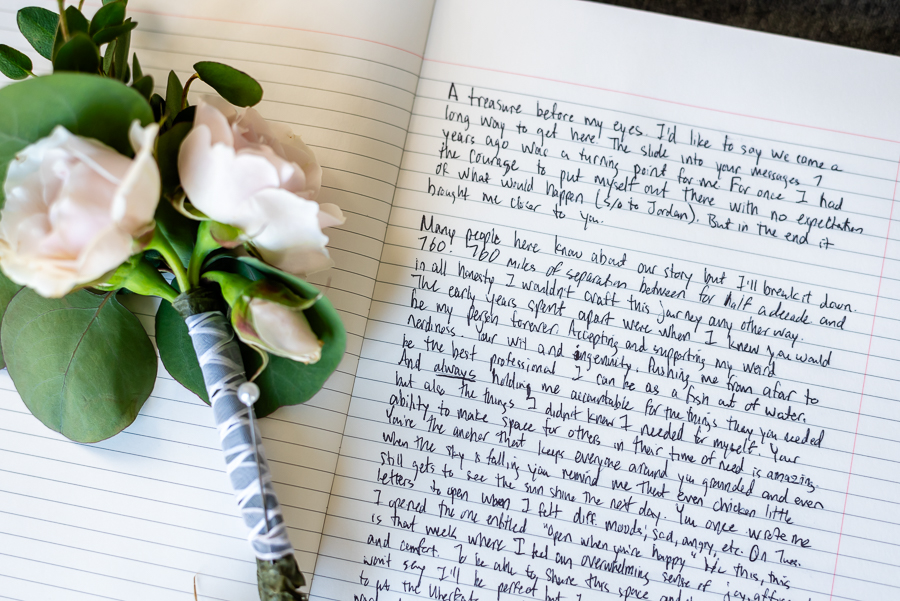 A treasure before my eyes. I'd like to say we came a
long way to get here. The slide into your messages 7
years ago was a turning point for me. For once I had
the courage to put myself out there with no expectation
of what would happen (s/o to Jordan). But in the end it
brought me closer to you.
Many people here know about our story but I'll break it down.
760. 760 miles of separation between for half a decade and
in all honesty I wouldn't craft this journey any other way.
The early years spent apart were when I knew you would
be my person forever. Accepting and supporting my weird
nerdiness. Your wit and ingenuity. Pushing me from afar to
be the best professional I can be as a fish out of water.
And always holding me accountable for the things they you needed
but also the things I didn't know I needed for myself. Your
ability to make space for others in their time of need is amazing.
You're the anchor that keeps everyone around you grounded and even
when the sky is falling you remind me that even chicken little
still gets to see the sun shine the next day. You once wrote me
letters to open when I felt diff. moods; sad, angry, etc. On Tues.
I opened the one entitled "Open when you're happy" b/c this, this
is that week where I feel an overwhelming sense of joy,
and comfort. To be able to share this space and
won't say I'll be perfect but I
to put the UberEats